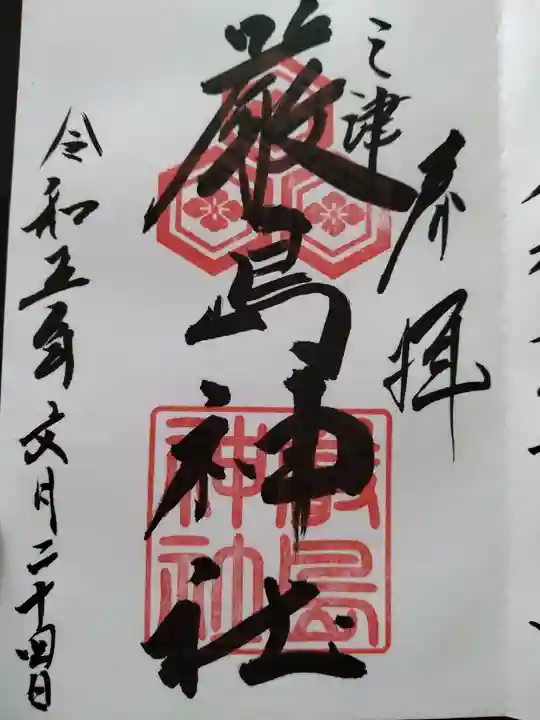 奉拝
三津
厳島神社
厳島
神社
令和五年文月二十四日